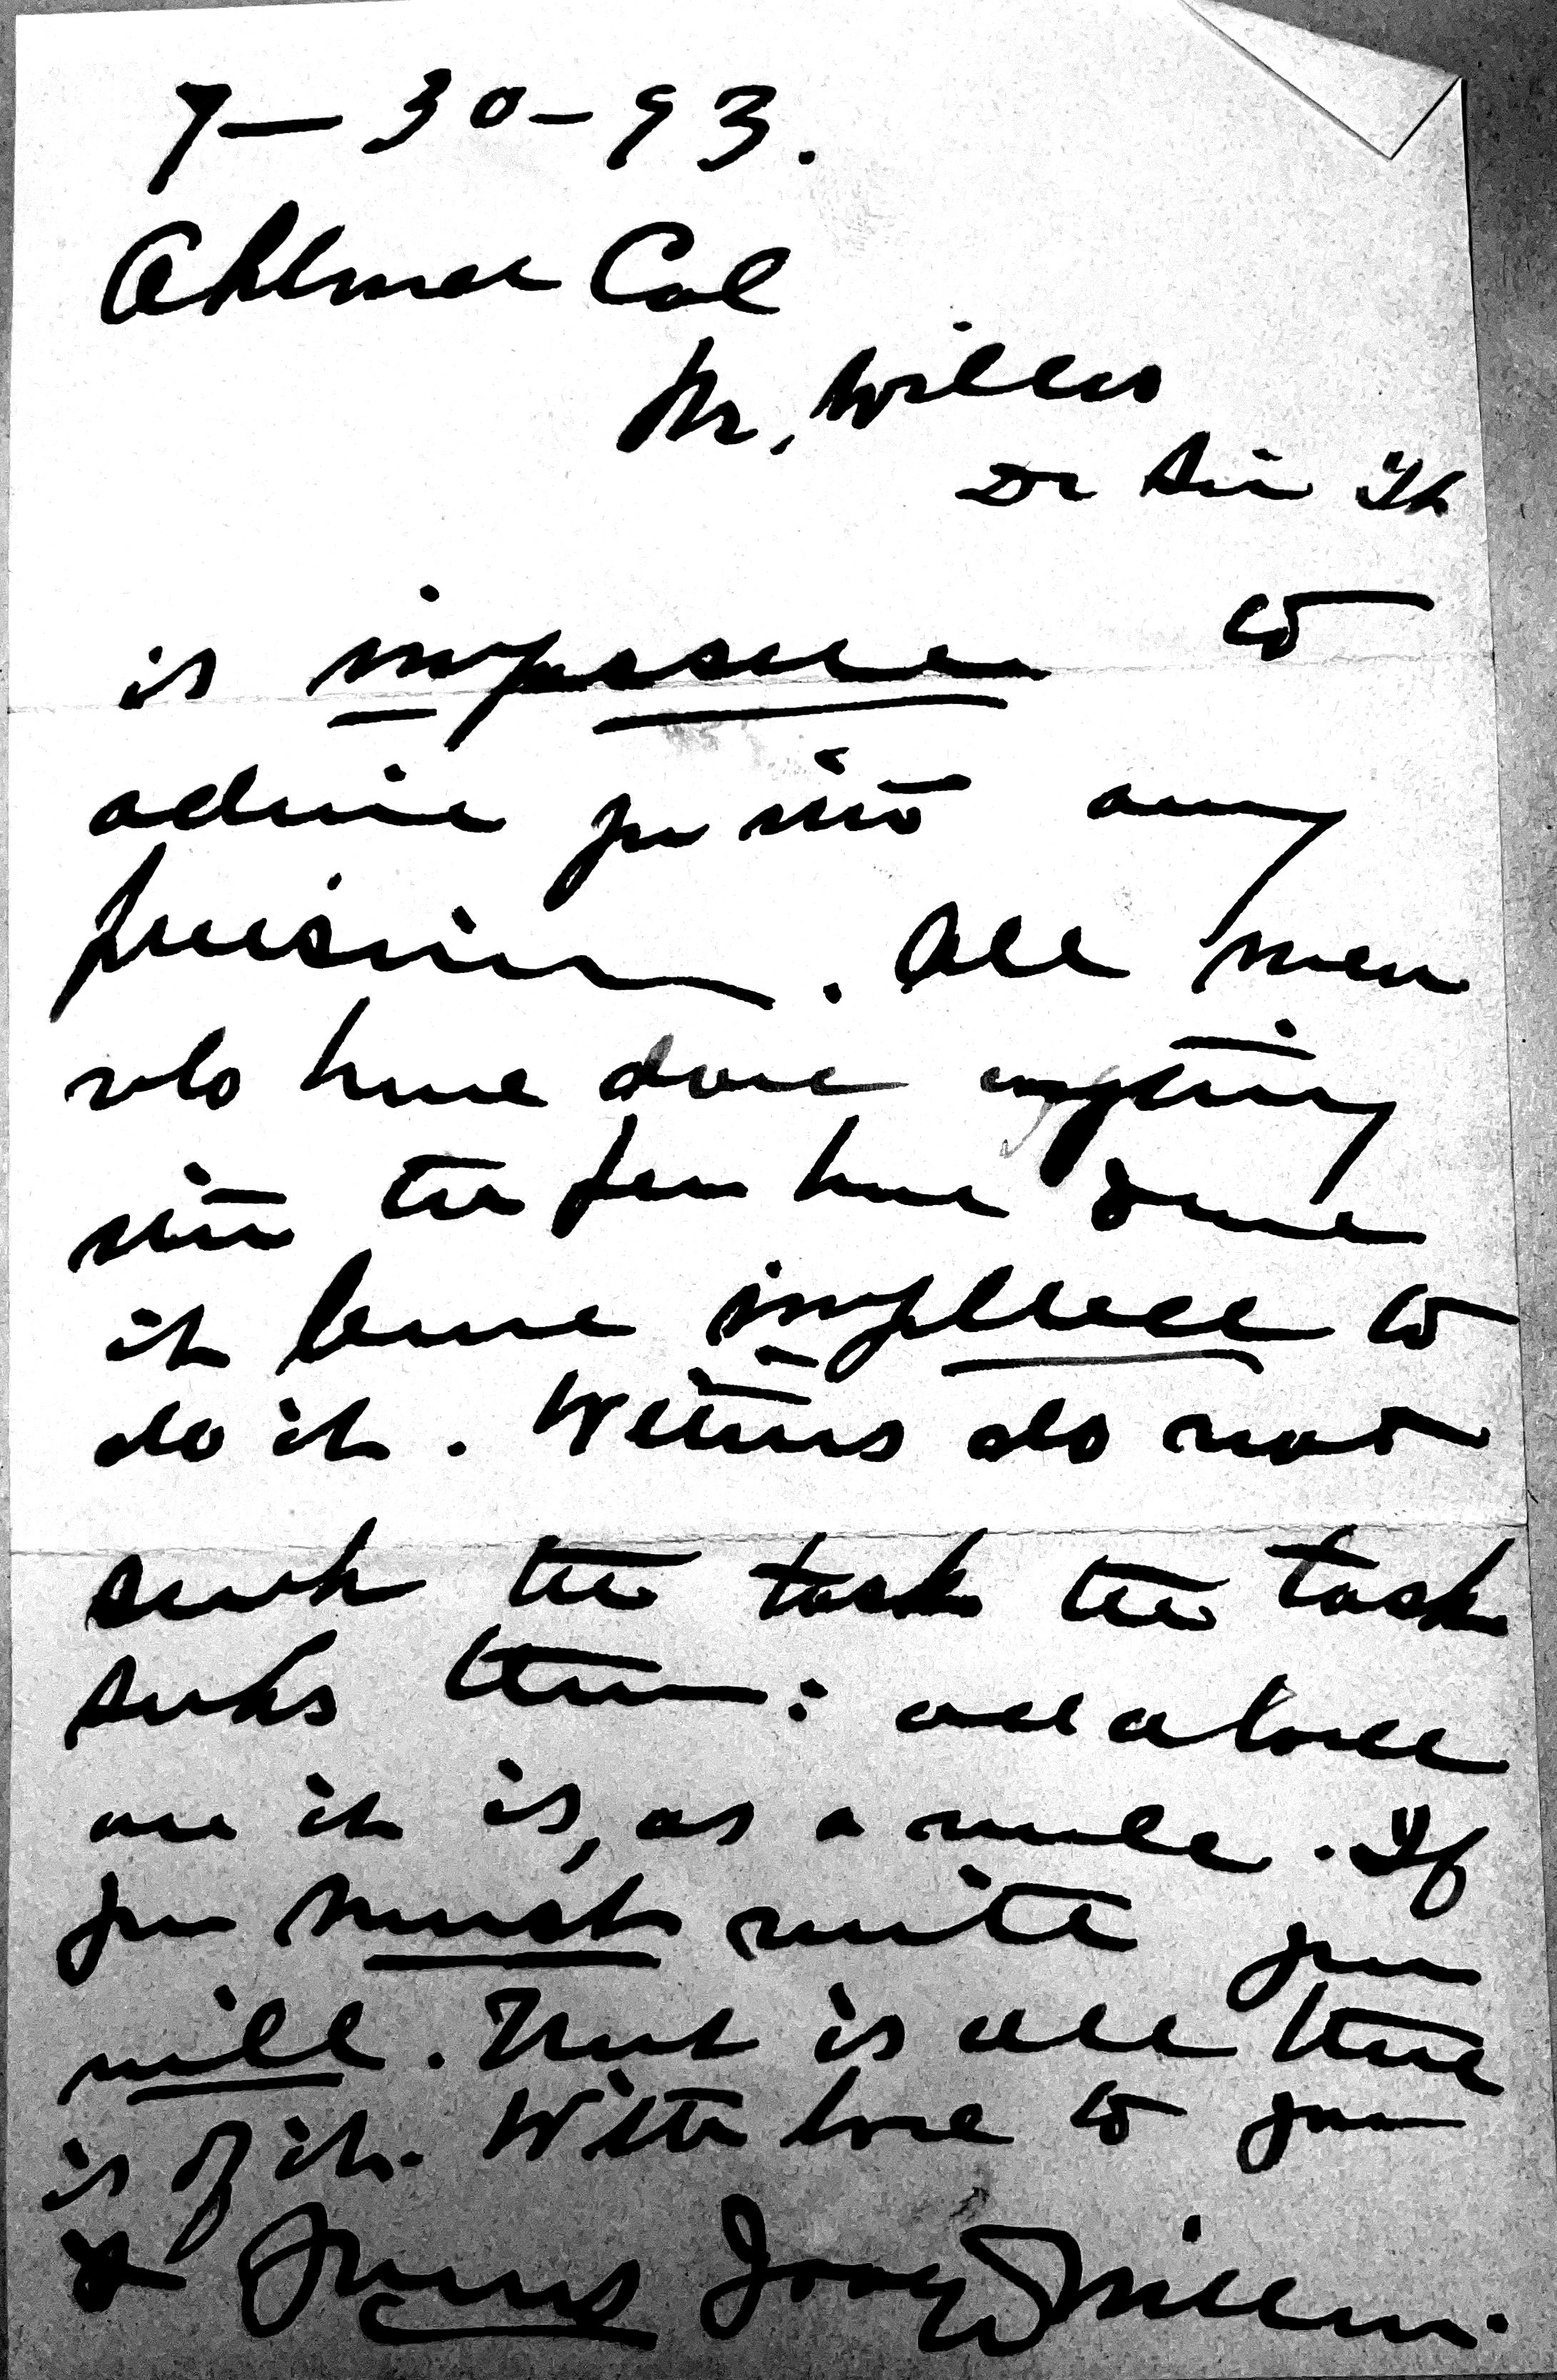 7-30-93.
Oakland Cal
Mr. Willis
Dr Sir It
is impossible to
advise you with any
precision. All men
who have done anything
with the pen have done
it because impelled to
do it. Writers do not
seek the task the task
seeks them: and a
one it is, as a rule. If
you must write you
will. That is all there
is of it. With love to you
& yours Joaquin Miller.